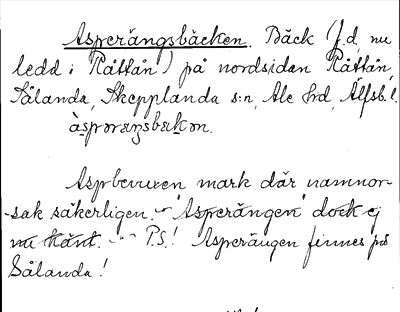 Asperängsbäcken. Bäck (f.d. nu
ledd i Råttån) på nordsidan Råttån,
Sålanda, Skepplanda s:n, Ale hrd, Älfsb. l.
àsporæŋsbækon.
Aspbevuxen mark där namnor-
-sak säkerligen. - "Asperängen" dock ej
nu känt. - - P.S.! Asperängen finnes på
Sålanda!